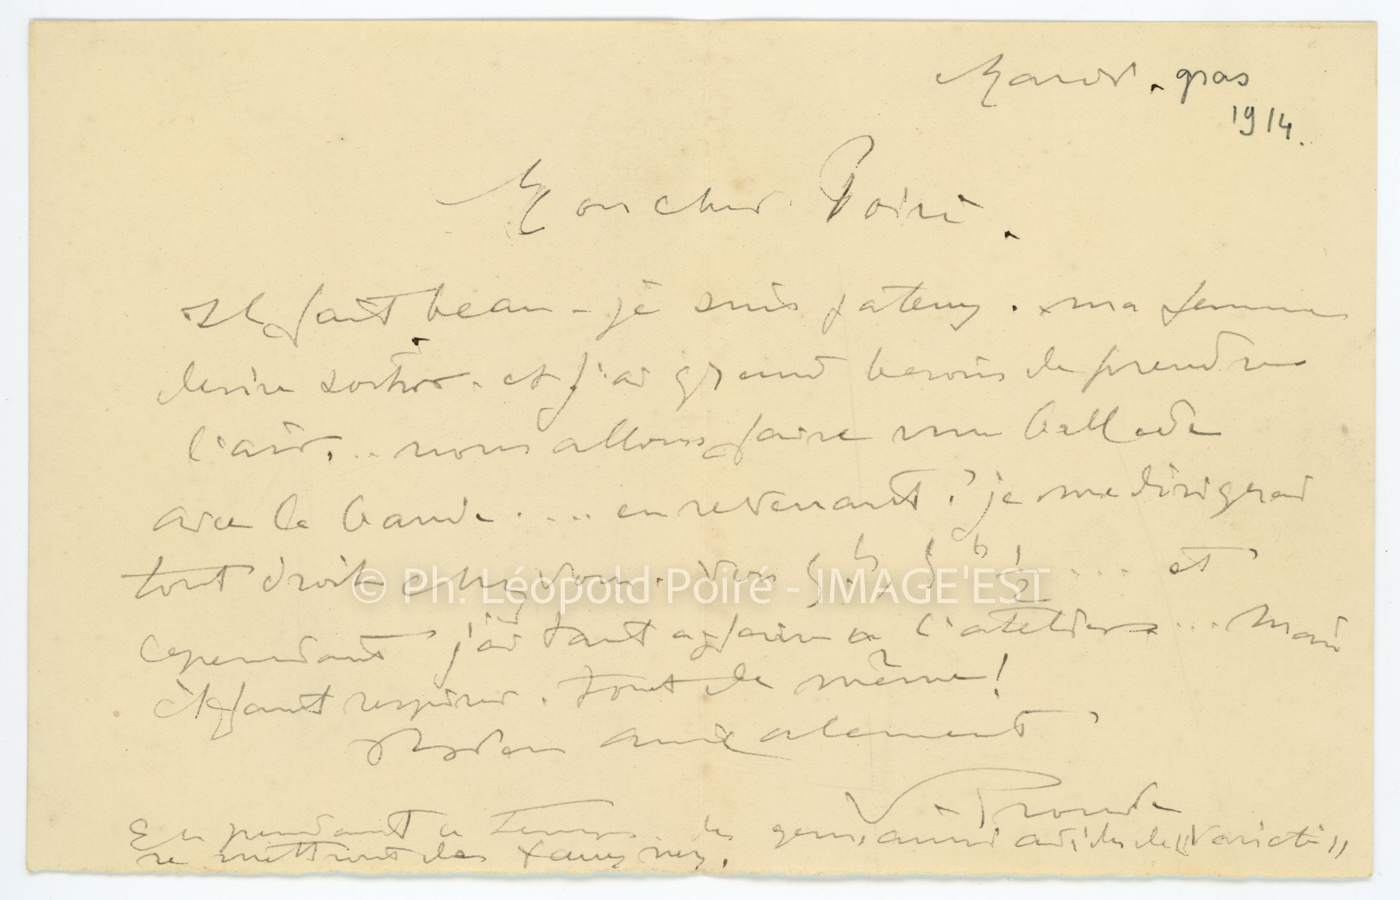 Mardi-gras
1914.
Mon cher Poiré.
Il fait beau - je suis . ma femme
désire sortir. et j'ai grand besoin de prendre
l'air... nous allons faire une ballade
avec la bande.... en revenant? je me dirigerai
tout droit chez vous. vers 5h, 5h ½ .... et
cependant j'ai tant affaire a l'atelier.... Mais
il faut respirer. tout de même!
amicalement
V. Prouvé
En pendant ce temps. des gens, ainsi avides de "Variété"
se mettront des faux nez.
© Ph. Léopold Poiré - IMAGE'EST